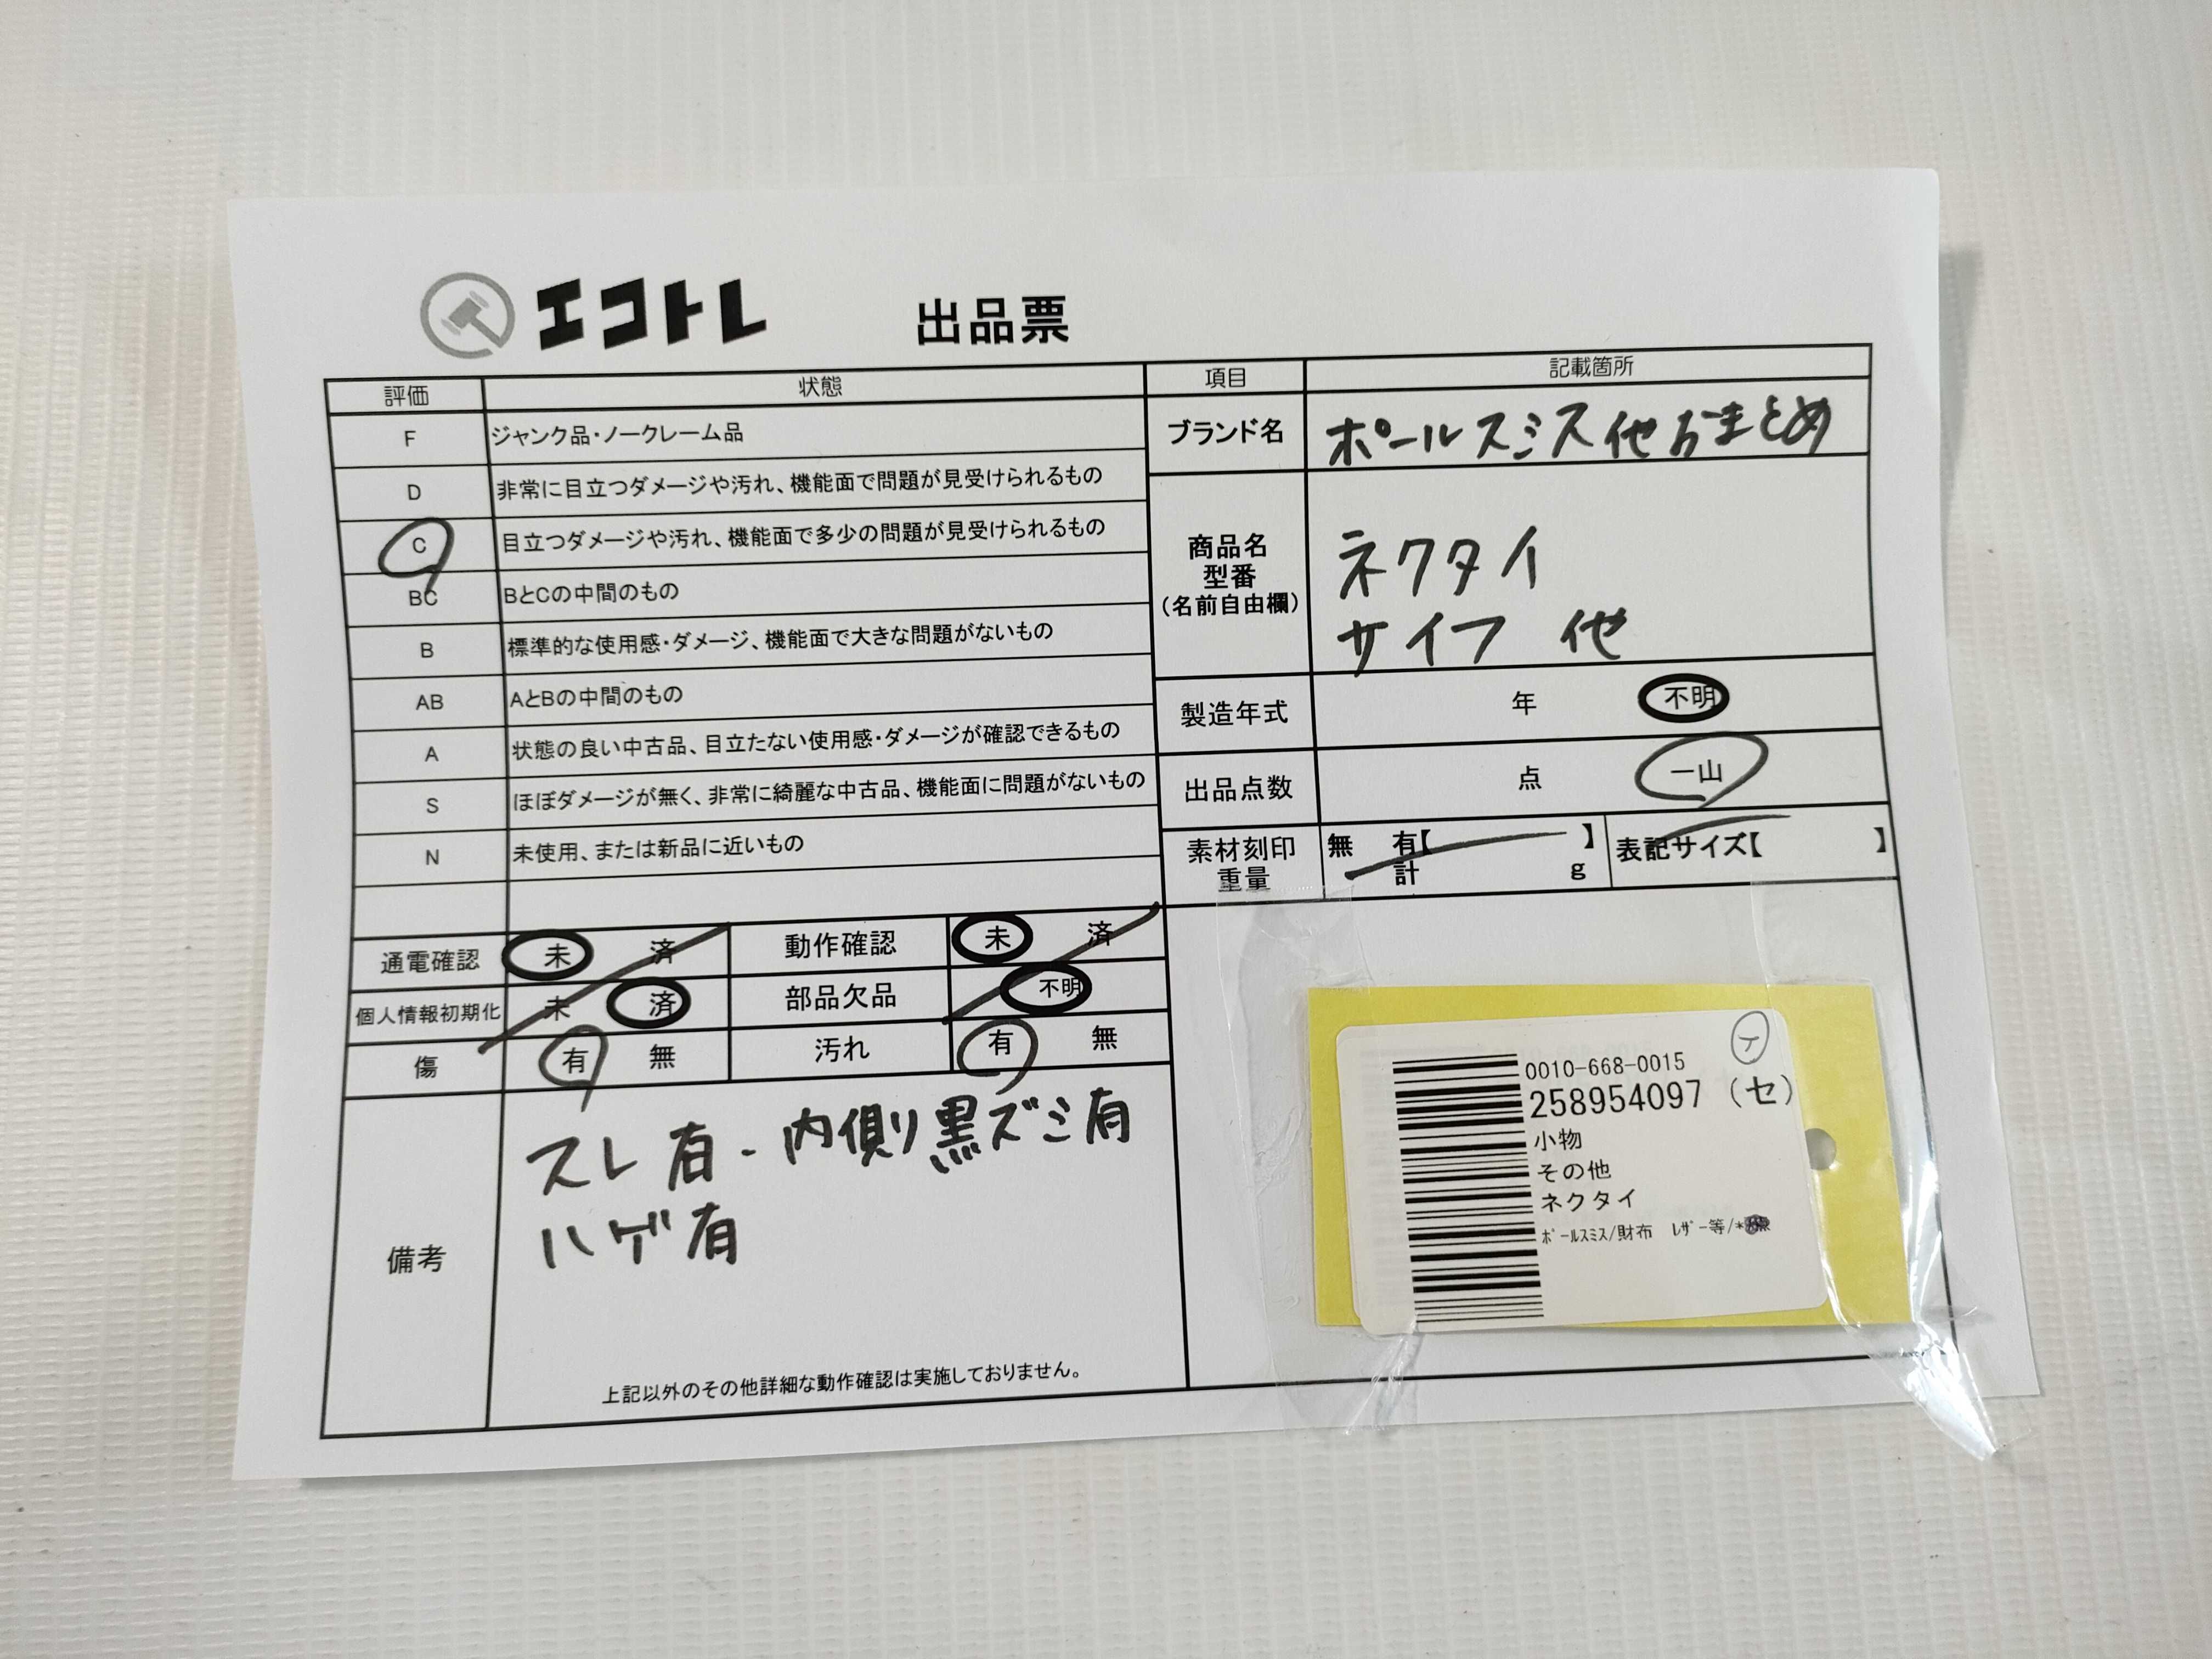 エコトレ 出品票
評価 状態
F ジャンク品・ノークレーム品
D 非常に目立つダメージや汚れ、機能面で問題が見受けられるもの
C 目立つダメージや汚れ、機能面で多少の問題が見受けられるもの
BC BとCの中間のもの
B 標準的な使用感・ダメージ、機能面で大きな問題がないもの
AB AとBの中間のもの
A 状態の良い中古品、目立たない使用感・ダメージが確認できるもの
S ほぼダメージが無く、非常に綺麗な中古品、機能面に問題がないもの
N 未使用、または新品に近いもの
項目 記載箇所
ブランド名 ポールスミス他おまとめ
商品名
型番
(名前自由欄)
ネクタイ
サイフ 他
製造年式 年 不明
出品点数 点 一山
素材刻印 無 有【 】 表記サイズ【 】
重量 計 g
通電確認 未 済 動作確認 未 済
個人情報初期化 未 済 部品欠品 不明
傷 有 無 汚れ 有 無
備考
スレ有・内側リ黒ズミ有
ハゲ有
上記以外のその他詳細な動作確認は実施しておりません。
0010-668-0015
258954097 (セ)
小物
その他
ネクタイ
ポールスミス/財布 レザー等/*